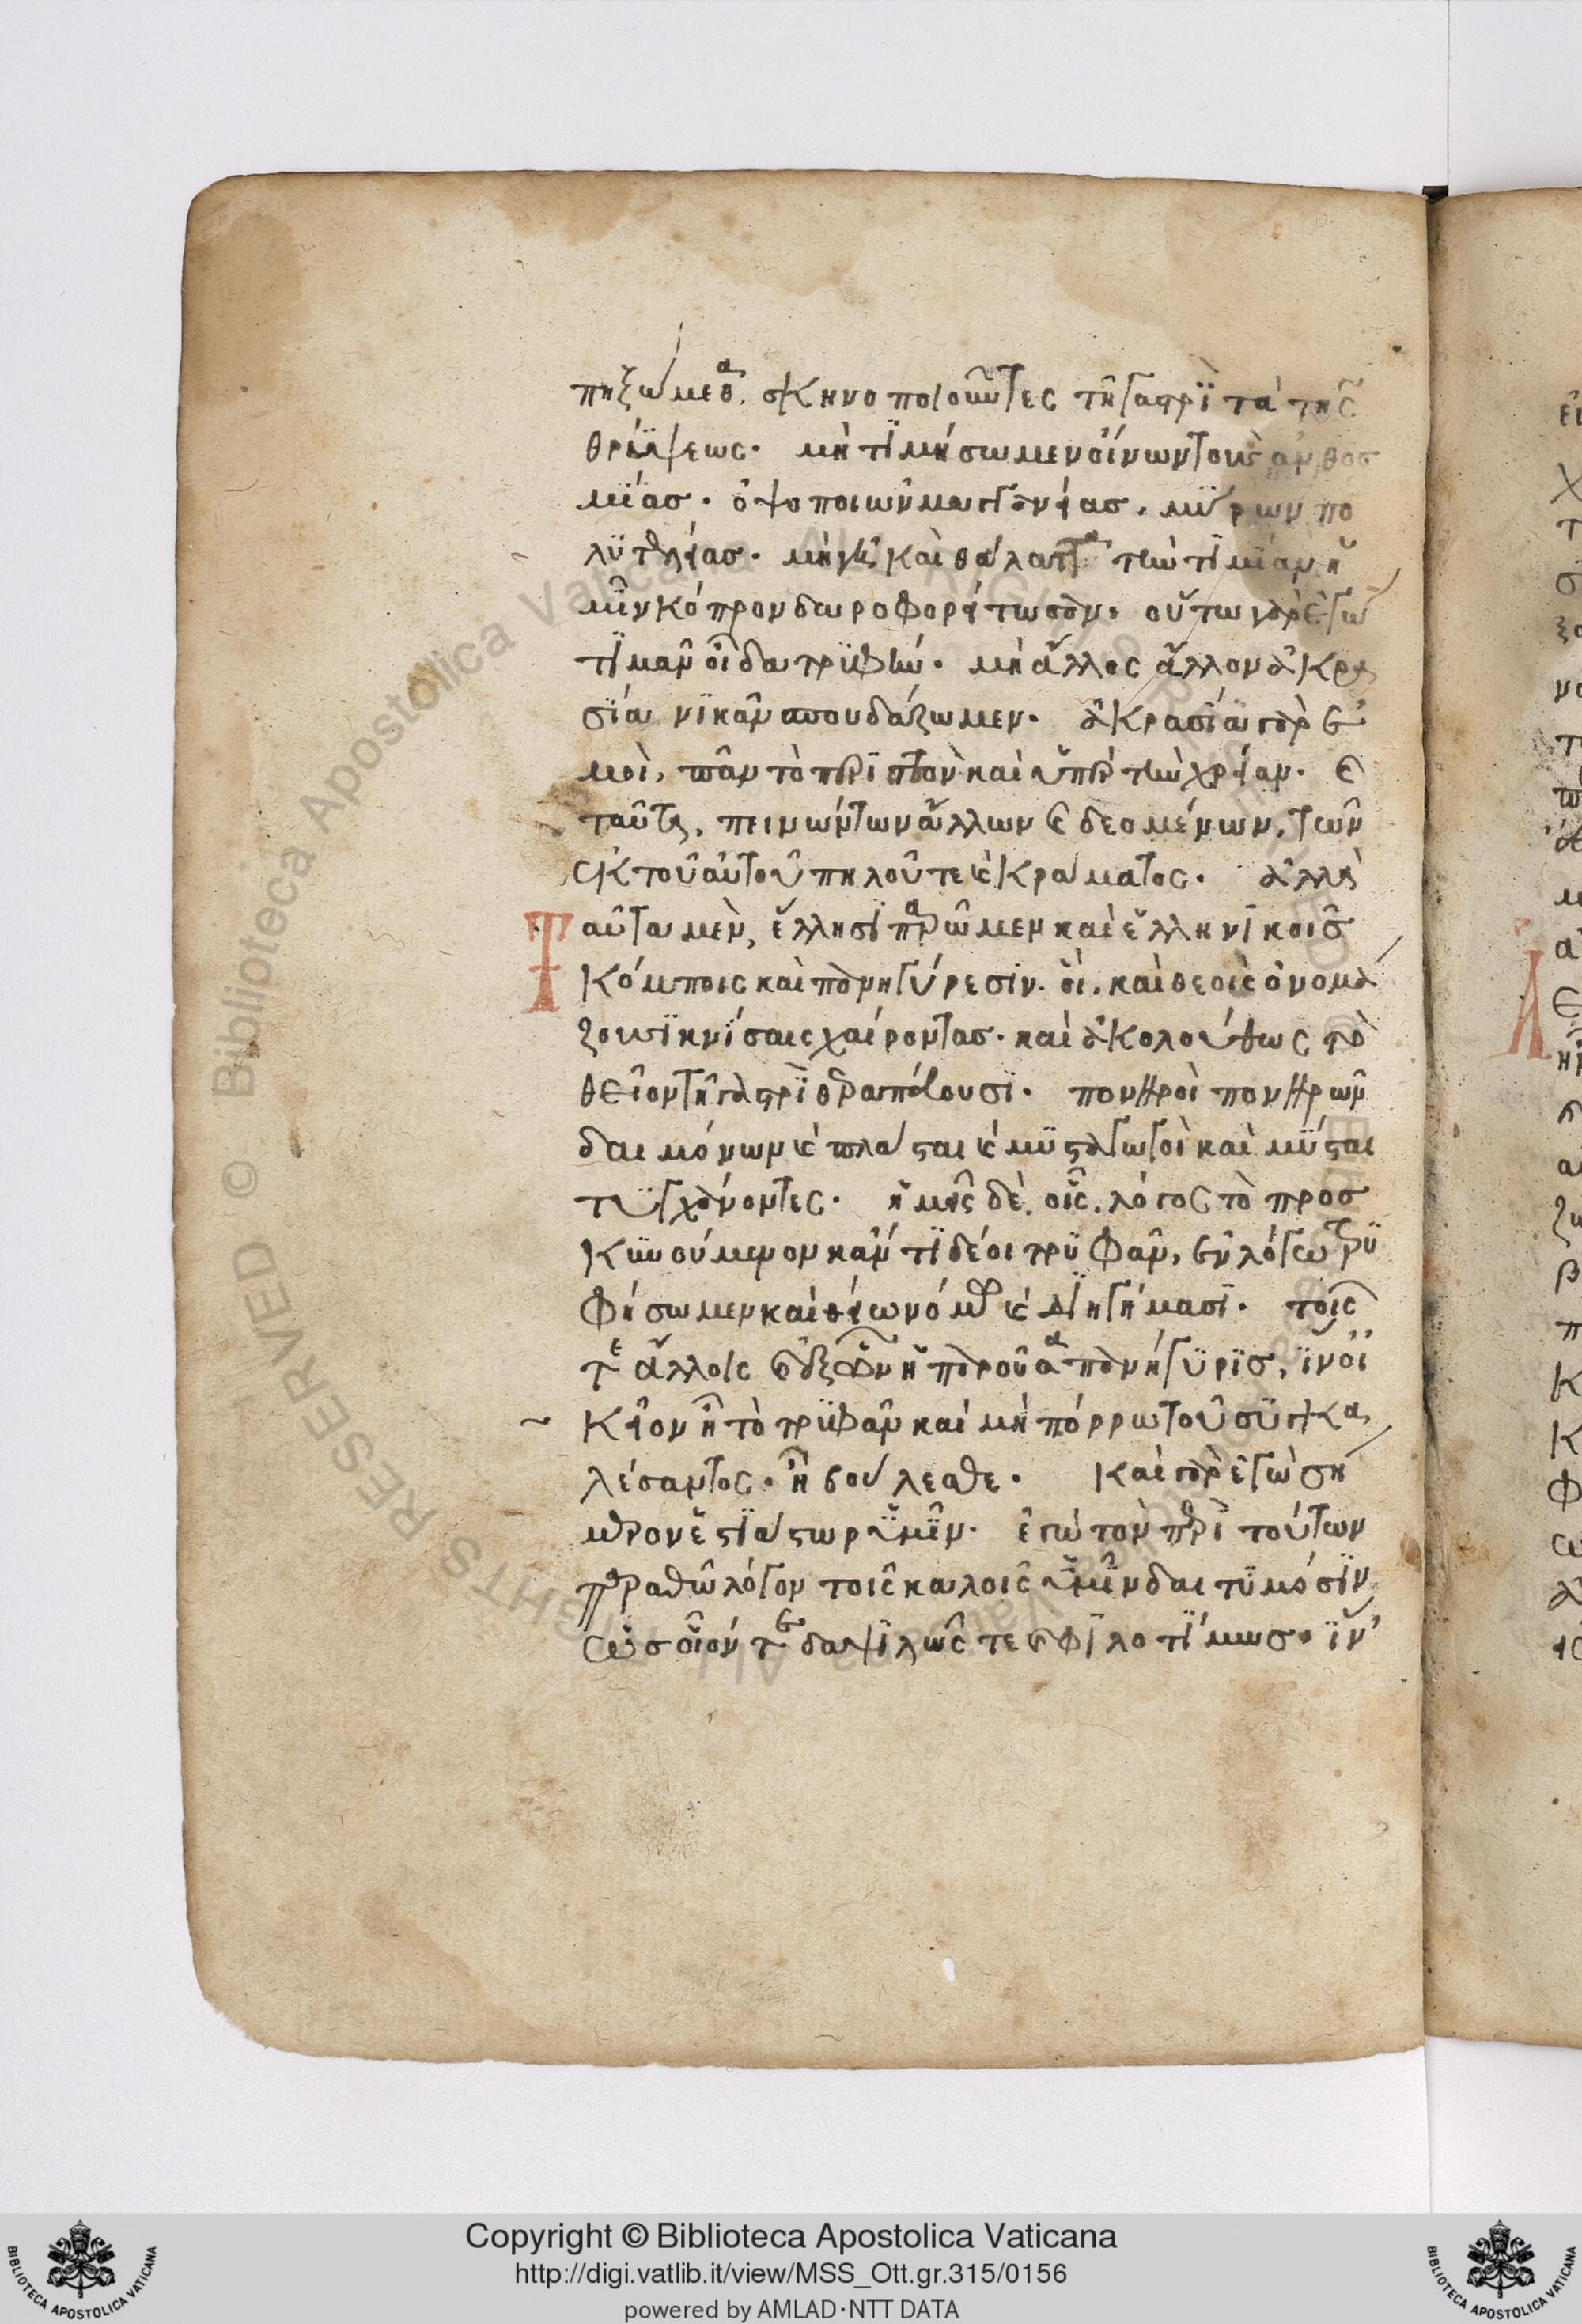 πηξώμεθα· σκηνοποιοῦντες τῆ γαστρὶ τὰ τῆς
θρύψεως· μὴ τιμήσωμεν οἴνων τοὺς ἀνθοσ
μίας· ὀψοποιῶν μαγγανείας· μύρων πο
λυτελείας· μὴ γῆ καὶ θάλαττα τὴν τιμίαν ἡ
μῖν κόπρον δωροφορείτωσαν· οὕτω γὰρ ἐγὼ
τιμᾶν οἶδα τρυφήν· μὴ ἄλλος ἄλλον ἀκρα
σία νικᾶν σπουδάζωμεν· ἀκρασία γὰρ ἐ
μοὶ, πᾶν τὸ περιττὸν καὶ ὑπὲρ τὴν χρείαν· καὶ
ταῦτα, πεινώντων ἄλλων καὶ δεομένων, τῶν
ἐκ τοῦ αὐτοῦ πηλοῦ τε καὶ κράματος· ἀλλὰ
Ταῦτα μὲν, ἕλλησι παρῶμεν καὶ ἑλληνικοῖς
κόμποις καὶ πανηγύρεσιν· οἳ, καὶ θεοὺς ὀνομά
ζουσι κνίσαις χαίροντας· καὶ ἀκολούθως τὸ
θεῖον τῆ γαστρὶ θεραπεύουσι· πονηροὶ πονηρῶν
δαιμόνων καὶ πλάσται καὶ μυσταγωγοὶ καὶ μύσται
τυγχάνοντες· ἡμεῖς δὲ, οἷς, λόγος τὸ προσ
κυνούμενον κἄν τι δέοι τρυφᾶν, ἐν λόγω τρυ
φήσωμεν καὶ θείω νόμω καὶ διηγήμασι· τοῖς
τε ἄλλοις καὶ ἐξ ὧν ἡ παροῦσα πανήγυρις, ἵν' οἰ
κεῖον ῆ τὸ τρυφᾶν καὶ μὴ πόρρω τοῦ συγκα
λέσαντος· ἢ βούλεσθε· καὶ γὰρ ἐγὼ σή
μερον ἑστιάτωρ ὑμῖν· ἐγὼ τὸν περὶ τούτων
παραθῶ λόγον τοῖς καλοῖς ὑμῖν δαιτυμόσιν,
ὡς οἷόν τε δαψιλῶς τε καὶ φιλοτίμως· ἵν'
Copyright © Biblioteca Apostolica Vaticana
http://digi.vatlib.it/view/MSS_Ott.gr.315/0156
powered by AMLAD·NTT DATA